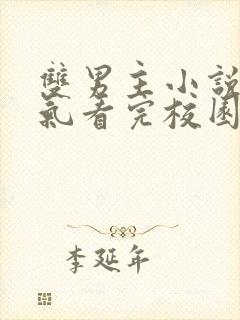 雙男主小說
氣看完校園
李延年